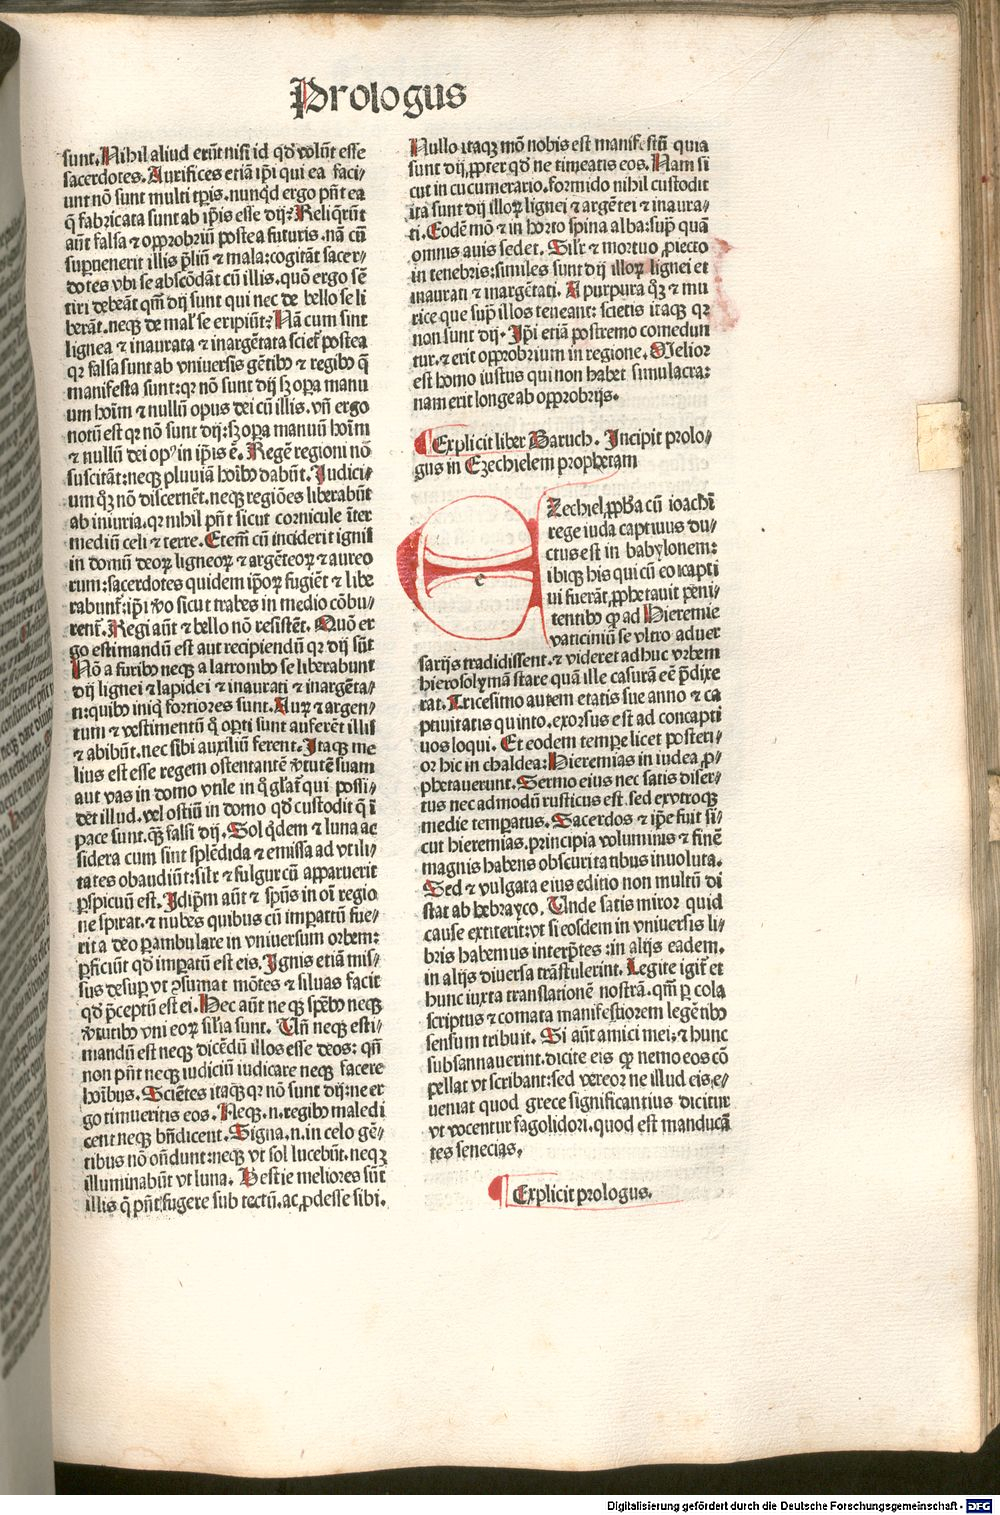 Prologus
sunt. Nihil aliud erũt nisi id qď volũt esse
sacerdotes. Aurifices etiã ip̃i qui ea faci⸗
unt nõ sunt multi tp̃is. nunqď ergo pñt ea
q̃ fabricata sunt ab ip̃is esse dij? Reliq̃rũt
aũt falsa ⁊ opp̱robriũ postea futuris. nã cũ
sup̱uenerit illis p̃liũ ⁊ mala: cogitãt sacer⸗
dotes vbi se abscõdãt cũ illis. quõ ergo sẽ
tiri debeãt qm̃ dij sunt qui nec de bello se li
berãt. neqꝫ de mal' se eripiũt? Nã cum sint
lignea ⁊ inaurata ⁊ inargẽtata sciet̃ postea
qꝛ falsa sunt ab vniuersis gẽtibꝰ ⁊ regibꝰ q̃
manifesta sunt: qꝛ nõ sunt dij sꝫ oꝑa manu
um hoĩm ⁊ nullũ opus dei cũ illis. vñ ergo
notũ est qꝛ nõ sunt dij: sꝫ oꝑa manuũ hoĩm
⁊ nullũ dei opꝰ in ip̃is ẽ. Regẽ regioni nõ
suscitãt: neqꝫ pluuiã hoĩbꝰ dabũt. Judici⸗
um qꝫ nõ discernẽt. neqꝫ regiões liberabũt
ab iniuria. qꝛ nihil pñt sicut cornicule ĩter
mediũ celi ⁊ terre. Etem̃ cũ inciderit ignis
in domũ deoꝝ ligneoꝝ ⁊ argẽteoꝝ ⁊ aureo
rum: sacerdotes quidem ip̃oꝝ fugiẽt ⁊ libe
rabunt̃: ip̃i ꝟo sicut trabes in medio cõbu⸗
rent̃. Regi aũt ⁊ bello nõ resistẽt. Quõ er
go estimandũ est aut recipiendũ qꝛ dij sũt
Nõ a furibꝰ neqꝫ a latronibꝰ se liberabunt
dij lignei ⁊ lapidei ⁊ inaurati ⁊ inargẽta⸗
ti: quibꝰ iniq̃ fortiores sunt. Auꝝ ⁊ argen⸗
tum ⁊ vestimentũ q̃ oꝑti sunt auferẽt illis
⁊ abibũt. nec sibi auxiliũ ferent. Itaqꝫ me
lius est esse regem ostentantẽ ꝟtutẽ suam
aut vas in domo vtile in q̃ gl'abit̃ qui possi⸗
det illud. vel ostiũ in domo qď custodit q̃ ĩ
pace sunt. qꝫ falsi dij. Sol q̃dem ⁊ luna ac
sidera cum sint splẽdida ⁊ emissa ad vtili⸗
tates obaudiũt: silr ⁊ fulgur cũ apparuerit
ꝑspicuũ est. Idip̃m aũt ⁊ sp̃ũs in oĩ regio
ne spirat. ⁊ nubes quibus cũ imp̱atũ fue⸗
rit a deo ꝑambulare in vniuersum orbem:
ꝑficiũt qď imp̱atũ est eis. Ignis etiã mis⸗
sus desup̱ vt ꝯsumat mõtes ⁊ siluas facit
qď p̃ceptũ est ei. Hec aũt neqꝫ spẽbꝰ neqꝫ
ꝟtutibꝰ vni eoꝝ silia sunt. Uñ neqꝫ esti⸗
mandũ est neqꝫ dicẽdũ illos esse deos: qñ
non pñt neqꝫ iudiciũ iudicare neqꝫ facere
hoĩbus. Sciẽtes itaqꝫ qꝛ nõ sunt dij: ne er
go timueritis eos. Neqꝫ. n. regibꝰ maledi
cent neqꝫ bñdicent. Signa. n. in celo gẽ⸗
tibus nõ oñdunt: neqꝫ vt sol lucebũt. neqꝫ
illuminabũt vt luna. Bestie meliores sũt
illis q̃ pñt fugere sub tectũ. ac ꝓdesse sibi.
Nullo itaqꝫ mõ nobis est manifestũ quia
sunt dij. ꝓpter qď ne timeatis eos. Nam si
cut in cucumerario. formido nihil custodit
ita sunt dij illoꝝ lignei ⁊ argẽtei ⁊ inaura⸗
ti. Eodẽ mõ ⁊ in horto spina alba: sup̱ quã
omnis auis sedet. Silr ⁊ mortuo ꝓiecto
in tenebris: similes sunt dij illoꝝ lignei et
inaurati ⁊ inargẽtati. A purpura qꝫ ⁊ mu
rice que sup̱ illos teneant: scietis itaqꝫ qꝛ
non sunt dij. Ip̃i etiã postremo comedun
tur. ⁊ erit opp̱robrium in regione. Melior
est homo iustus qui non habet simulacra:
nam erit longe ab opp̱robrijs.
Explicit liber Baruch. Incipit prolo⸗
gus in Ezechielem prophetam
e
Zechiel ꝓpħa cũ ioachĩ
rege iuda captiuus du⸗
ctus est in babylonem:
ibiqꝫ his qui cũ eo capti
ui fuerãt. ꝓphetauit peni⸗
tentibꝰ ꝙ ad Hieremie
vaticiniũ se vltro aduer
sarijs tradidissent. ⁊ videret adhuc vrbem
hierosolymã stare quã ille casurã eẽ p̃dixe
rat. Tricesimo autem etatis sue anno ⁊ ca
ptiuitatis quinto. exorsus est ad concapti
uos loqui. Et eodem temꝑe licet posteri⸗
or hic in chaldea: Hieremias in iudea ꝓ⸗
phetauerunt. Sermo eius nec satis diser⸗
tus nec admodũ rusticus est. sed ex vtroqꝫ
medie temꝑatus. Sacerdos ⁊ ip̃e fuit si⸗
cut hieremias. principia voluminis ⁊ finẽ
magnis habens obscuritatibus inuoluta.
Sed ⁊ vulgata eius editio non multũ di
stat ab hebrayco. Unde satis miror quid
cause extiterit: vt si eosdem in vniuersis li⸗
bris habemus interp̃tes: in alijs eadem.
in alijs diuersa trãstulerint. Legite igit̃ et
hunc iuxta translationẽ nostrã. qm̃ ꝑ cola
scriptus ⁊ comata manifestiorem legẽtibꝰ
sensum tribuit. Si aũt amici mei: ⁊ hunc
subsannauerint. dicite eis ꝙ nemo eos cõ
pellat vt scribant: sed vereor ne illud eis e⸗
ueniat quod grece significantius dicitur
vt vocentur fagolidori. quod est manducã
tes senecias.
Explicit prologus.
Digitalisierung gefördert durch die Deutsche Forschungsgemeinschaft - DFG